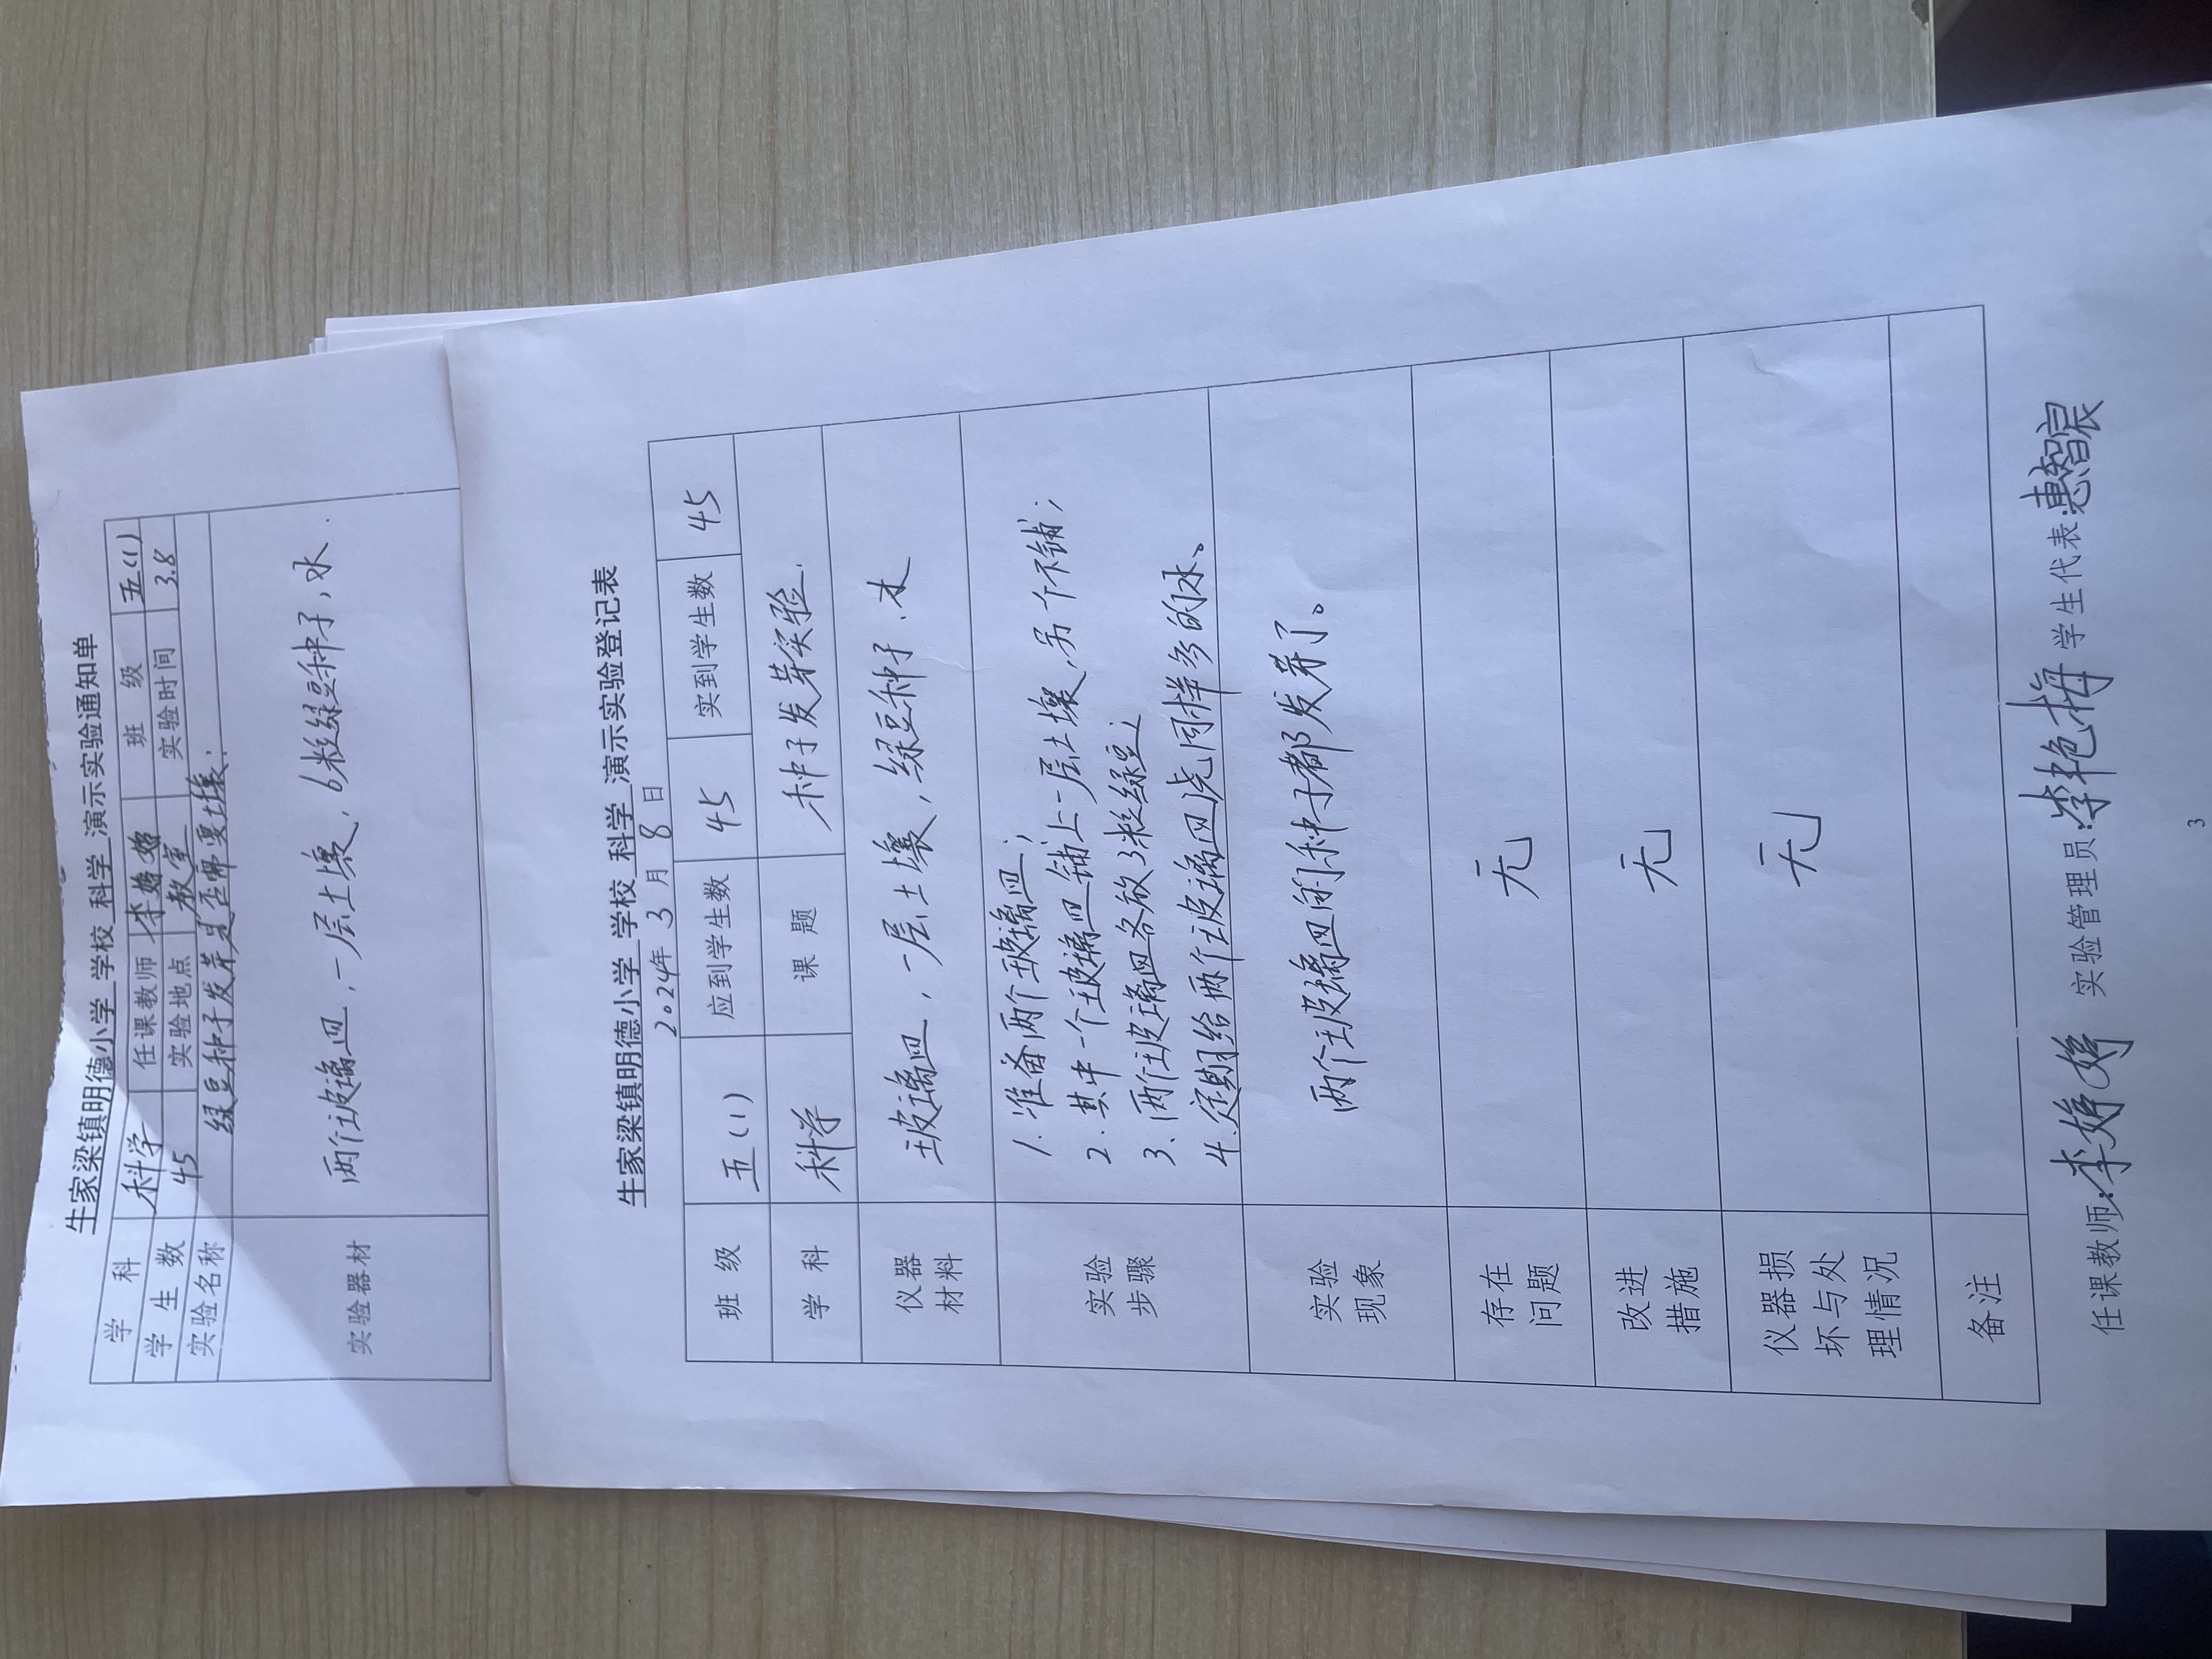 生家梁镇明德小学 学校 科学 演示实验通知单
学 科 科学 任课教师 李婷婷 班 级 五(1)
学 生 数 45 实验地点 教室 实验时间 3.8
实验名称 绿豆种子发芽是否需要土壤.
实验器材 两个玻璃皿,一层土壤,6粒绿豆种子,水.
生家梁镇明德小学 学校 科学 演示实验登记表
2024年 3 月 8 日
班 级 五(1) 应到学生数 45 实到学生数 45
学 科 科学 课 题 种子发芽实验.
仪器
材料
玻璃皿,一层土壤,绿豆种子.水
实验
步骤
1.准备两个玻璃皿;
2.其中一个玻璃皿铺上一层土壤,另一个不铺;
3.两个玻璃皿各放3粒绿豆;
4.定期给两个玻璃皿浇同样多的水。
实验
现象
两个玻璃皿的种子都发芽了。
存在
问题
无
改进
措施
无
仪器损
坏与处
理情况
无
备注
任课教师:李婷婷 实验管理员:李艳梅 学生代表:惠智宸
3